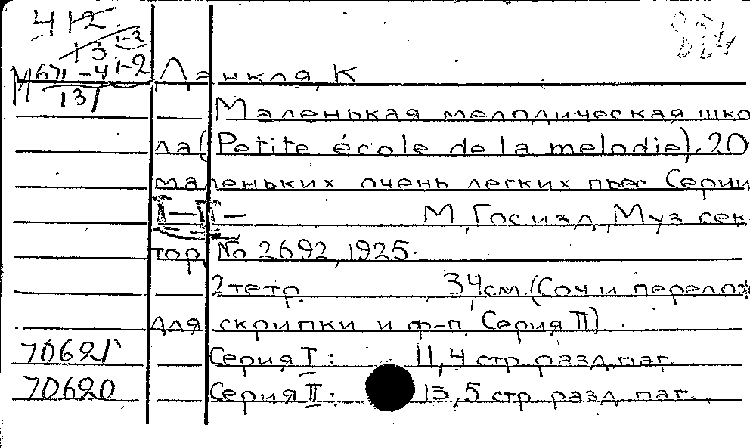 41-2
13 1-2
М671-41-2
131
Данкля, К
Маленькая мелодическая шко
ла (Petite école de la melodie). 20
маленьких очень легких пьес Серии
I-II-
М, Госизд, Муз сек-
тор, No 2692, 1925.
2 тетр. 34 см. (Соч и перелож
для скрипки и ф-п. Серия II).
70621 Серия I: 11,4 стр. разд. паг.
70620 Серия II: 13,5 стр. разд. паг.